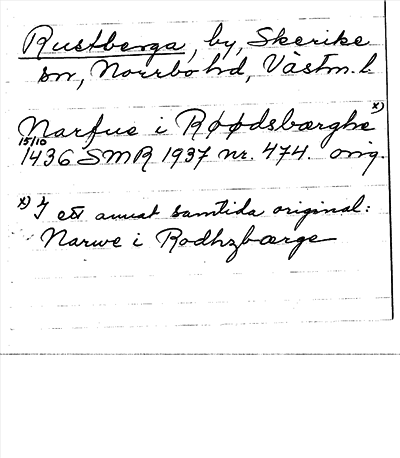 Rustberga, by, Skerike
sn, Norrbo hd, Västm. l.
Narfue i Røødsbærghe x)
15/10
1436 SMR 1937 nr. 474. orig.
x) I ett annat samtida original:
Narwe i Rodhzbærge